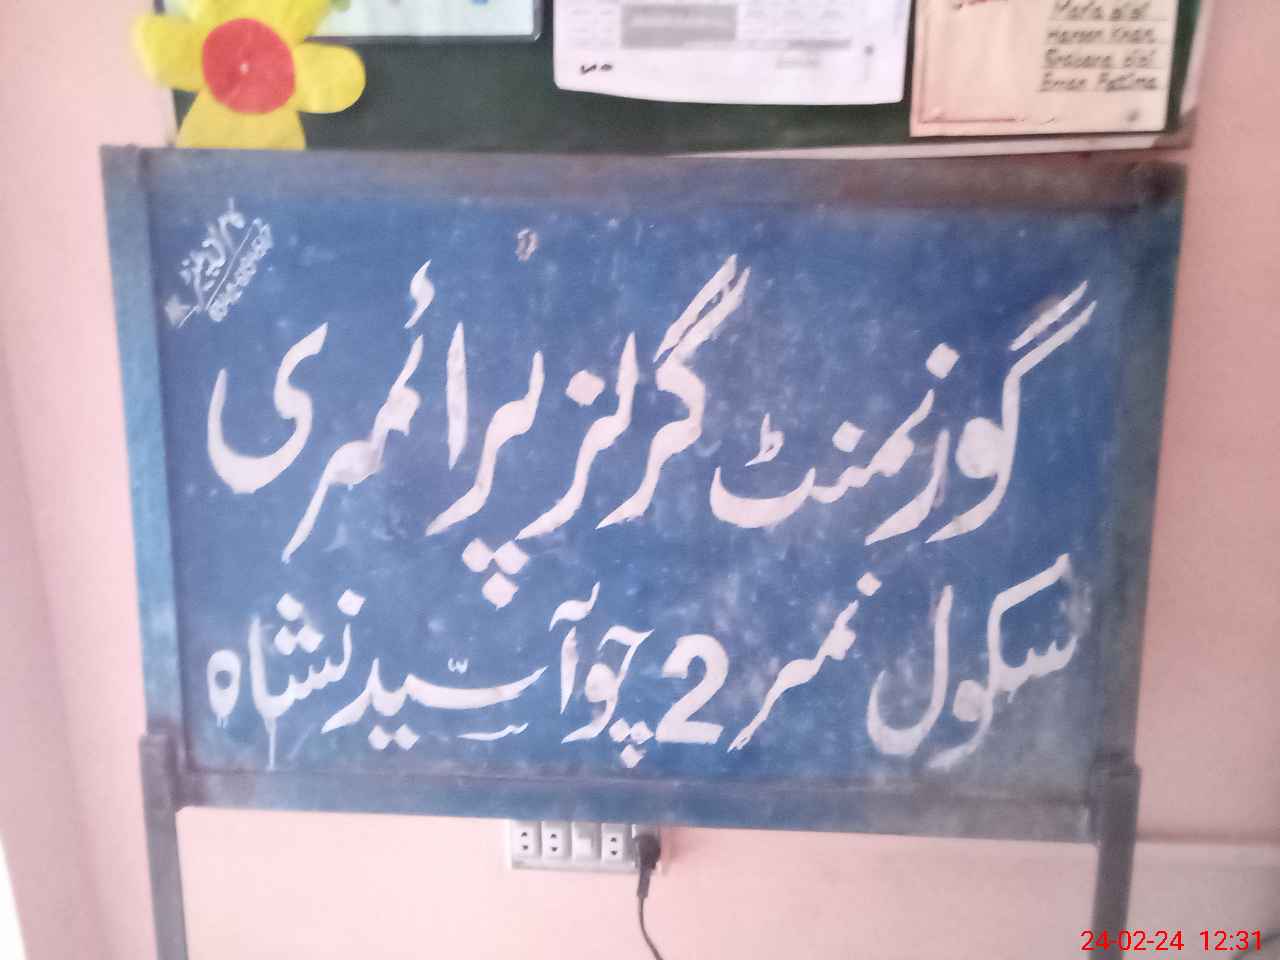 Maria
Haroon Khan
Eman Fatima
گورنمنٹ گرلز پرائمری
سکول نمبر 2 چوآسیدنشاہ
24-02-24 12:31